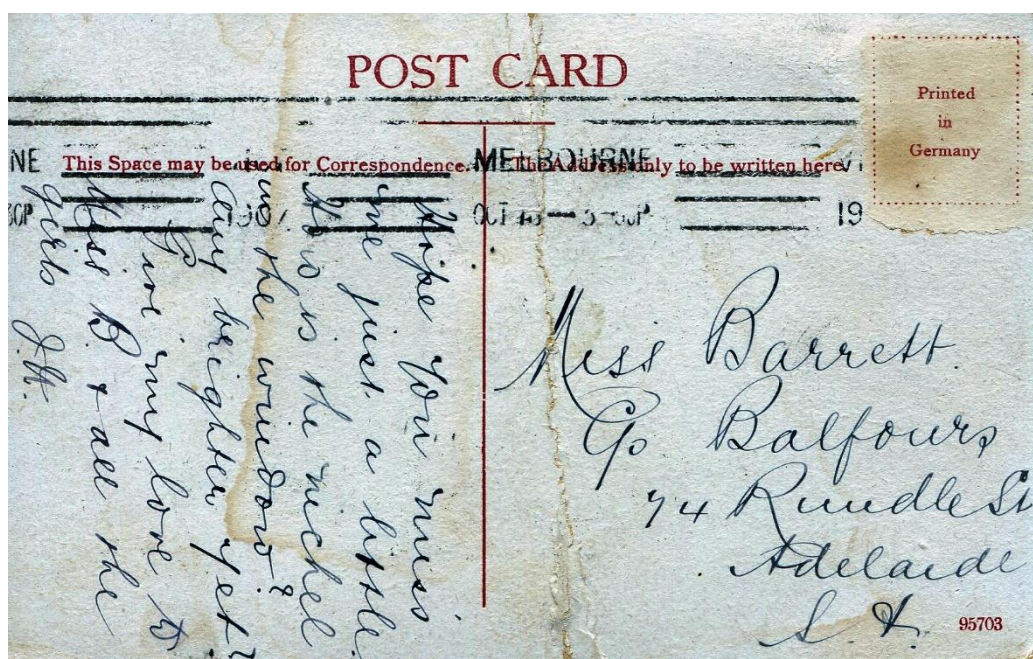 POST CARD
Printed
in
Germany
This Space may be used for Correspondence.
The Address only to be written here
NE
MELBOURNE
VI
30P
1907
OCT 18 3-30P
19
Hope you miss
me just a little.
How is the nickel
in the window?
any brighter yet?
Give my love to
Miss B. + all the
girls J.W.
Miss Barrett.
C/o Balfours
74 Rundle St
Adelaide
S. A.
95703